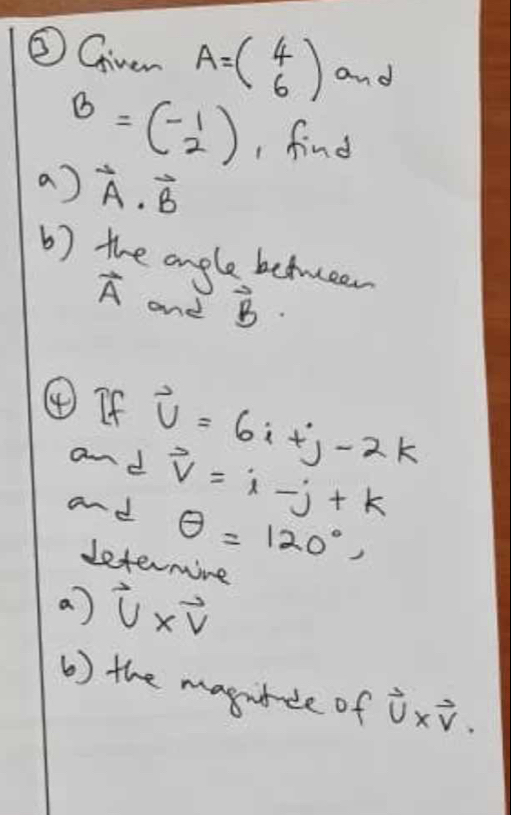 ③ Given A = (4 6) and
B = (-1 2), find
a) A⃗ . B⃗
b) the angle between
A⃗ and B⃗.
④ If U⃗ = 6i + j - 2k
and V⃗ = i - j + k
and θ = 120°,
determine
a) U⃗ x V⃗
b) the magnitude of U⃗ x V⃗.